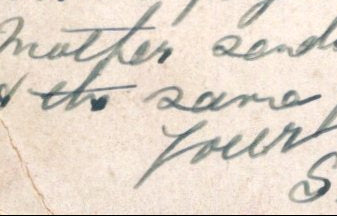 Mother sends
& the same
Yours
S